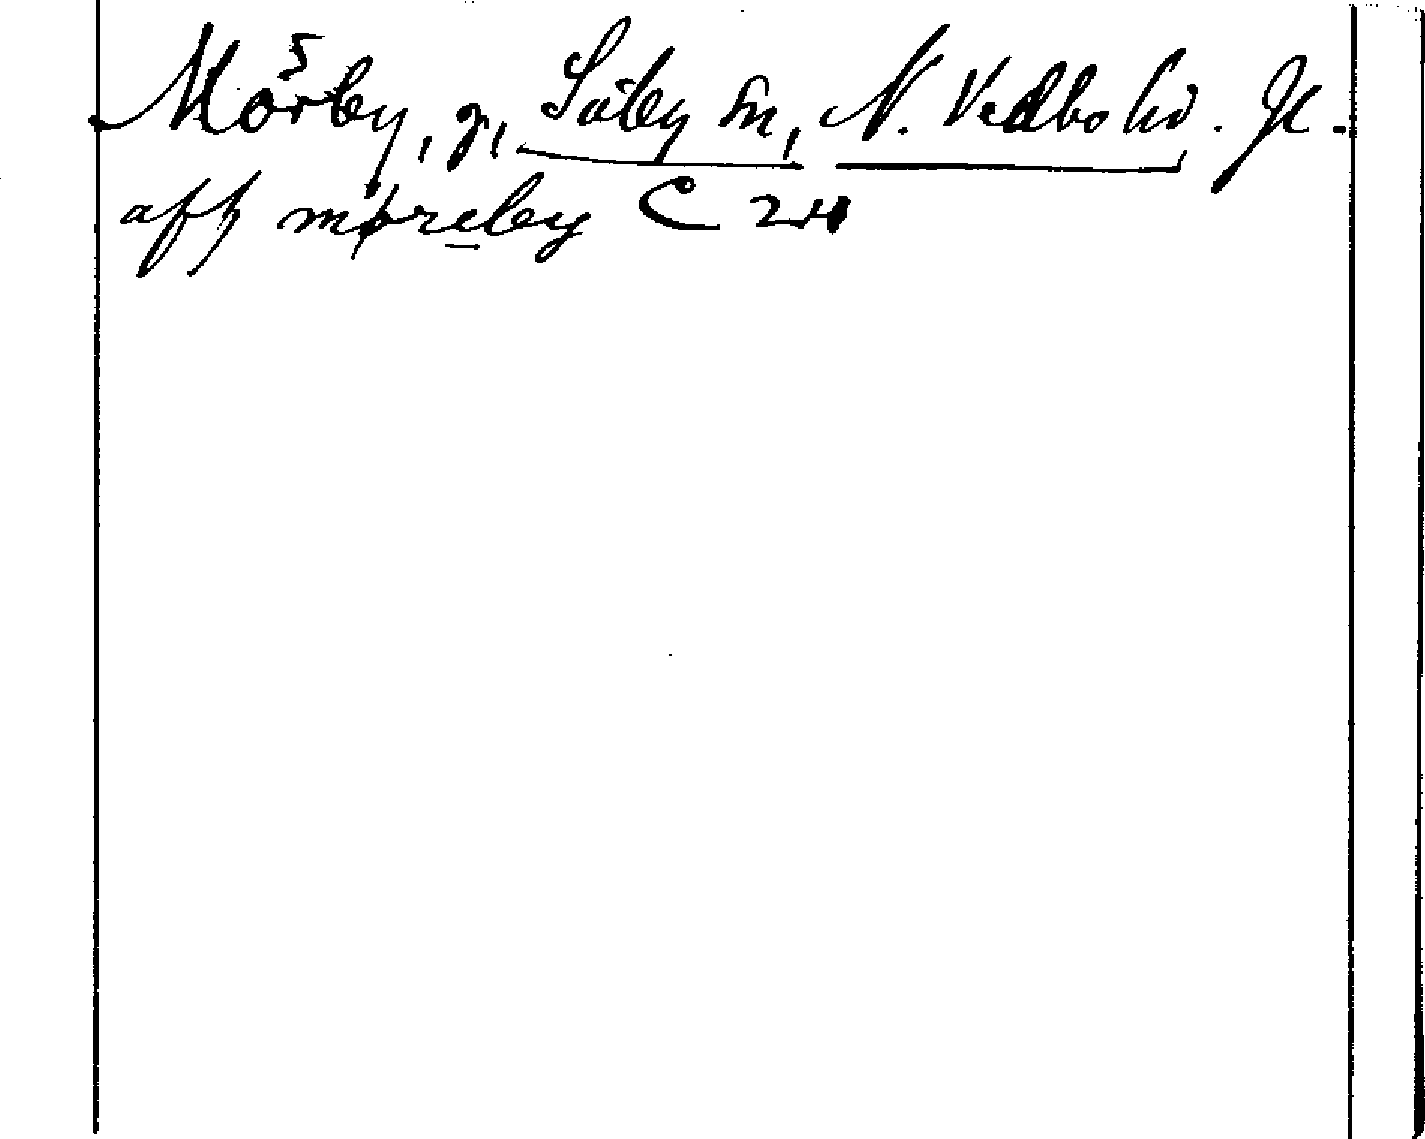 Mörby, g, Säby sn, N. Vedbo hd. Jl.
aff møreby C 24